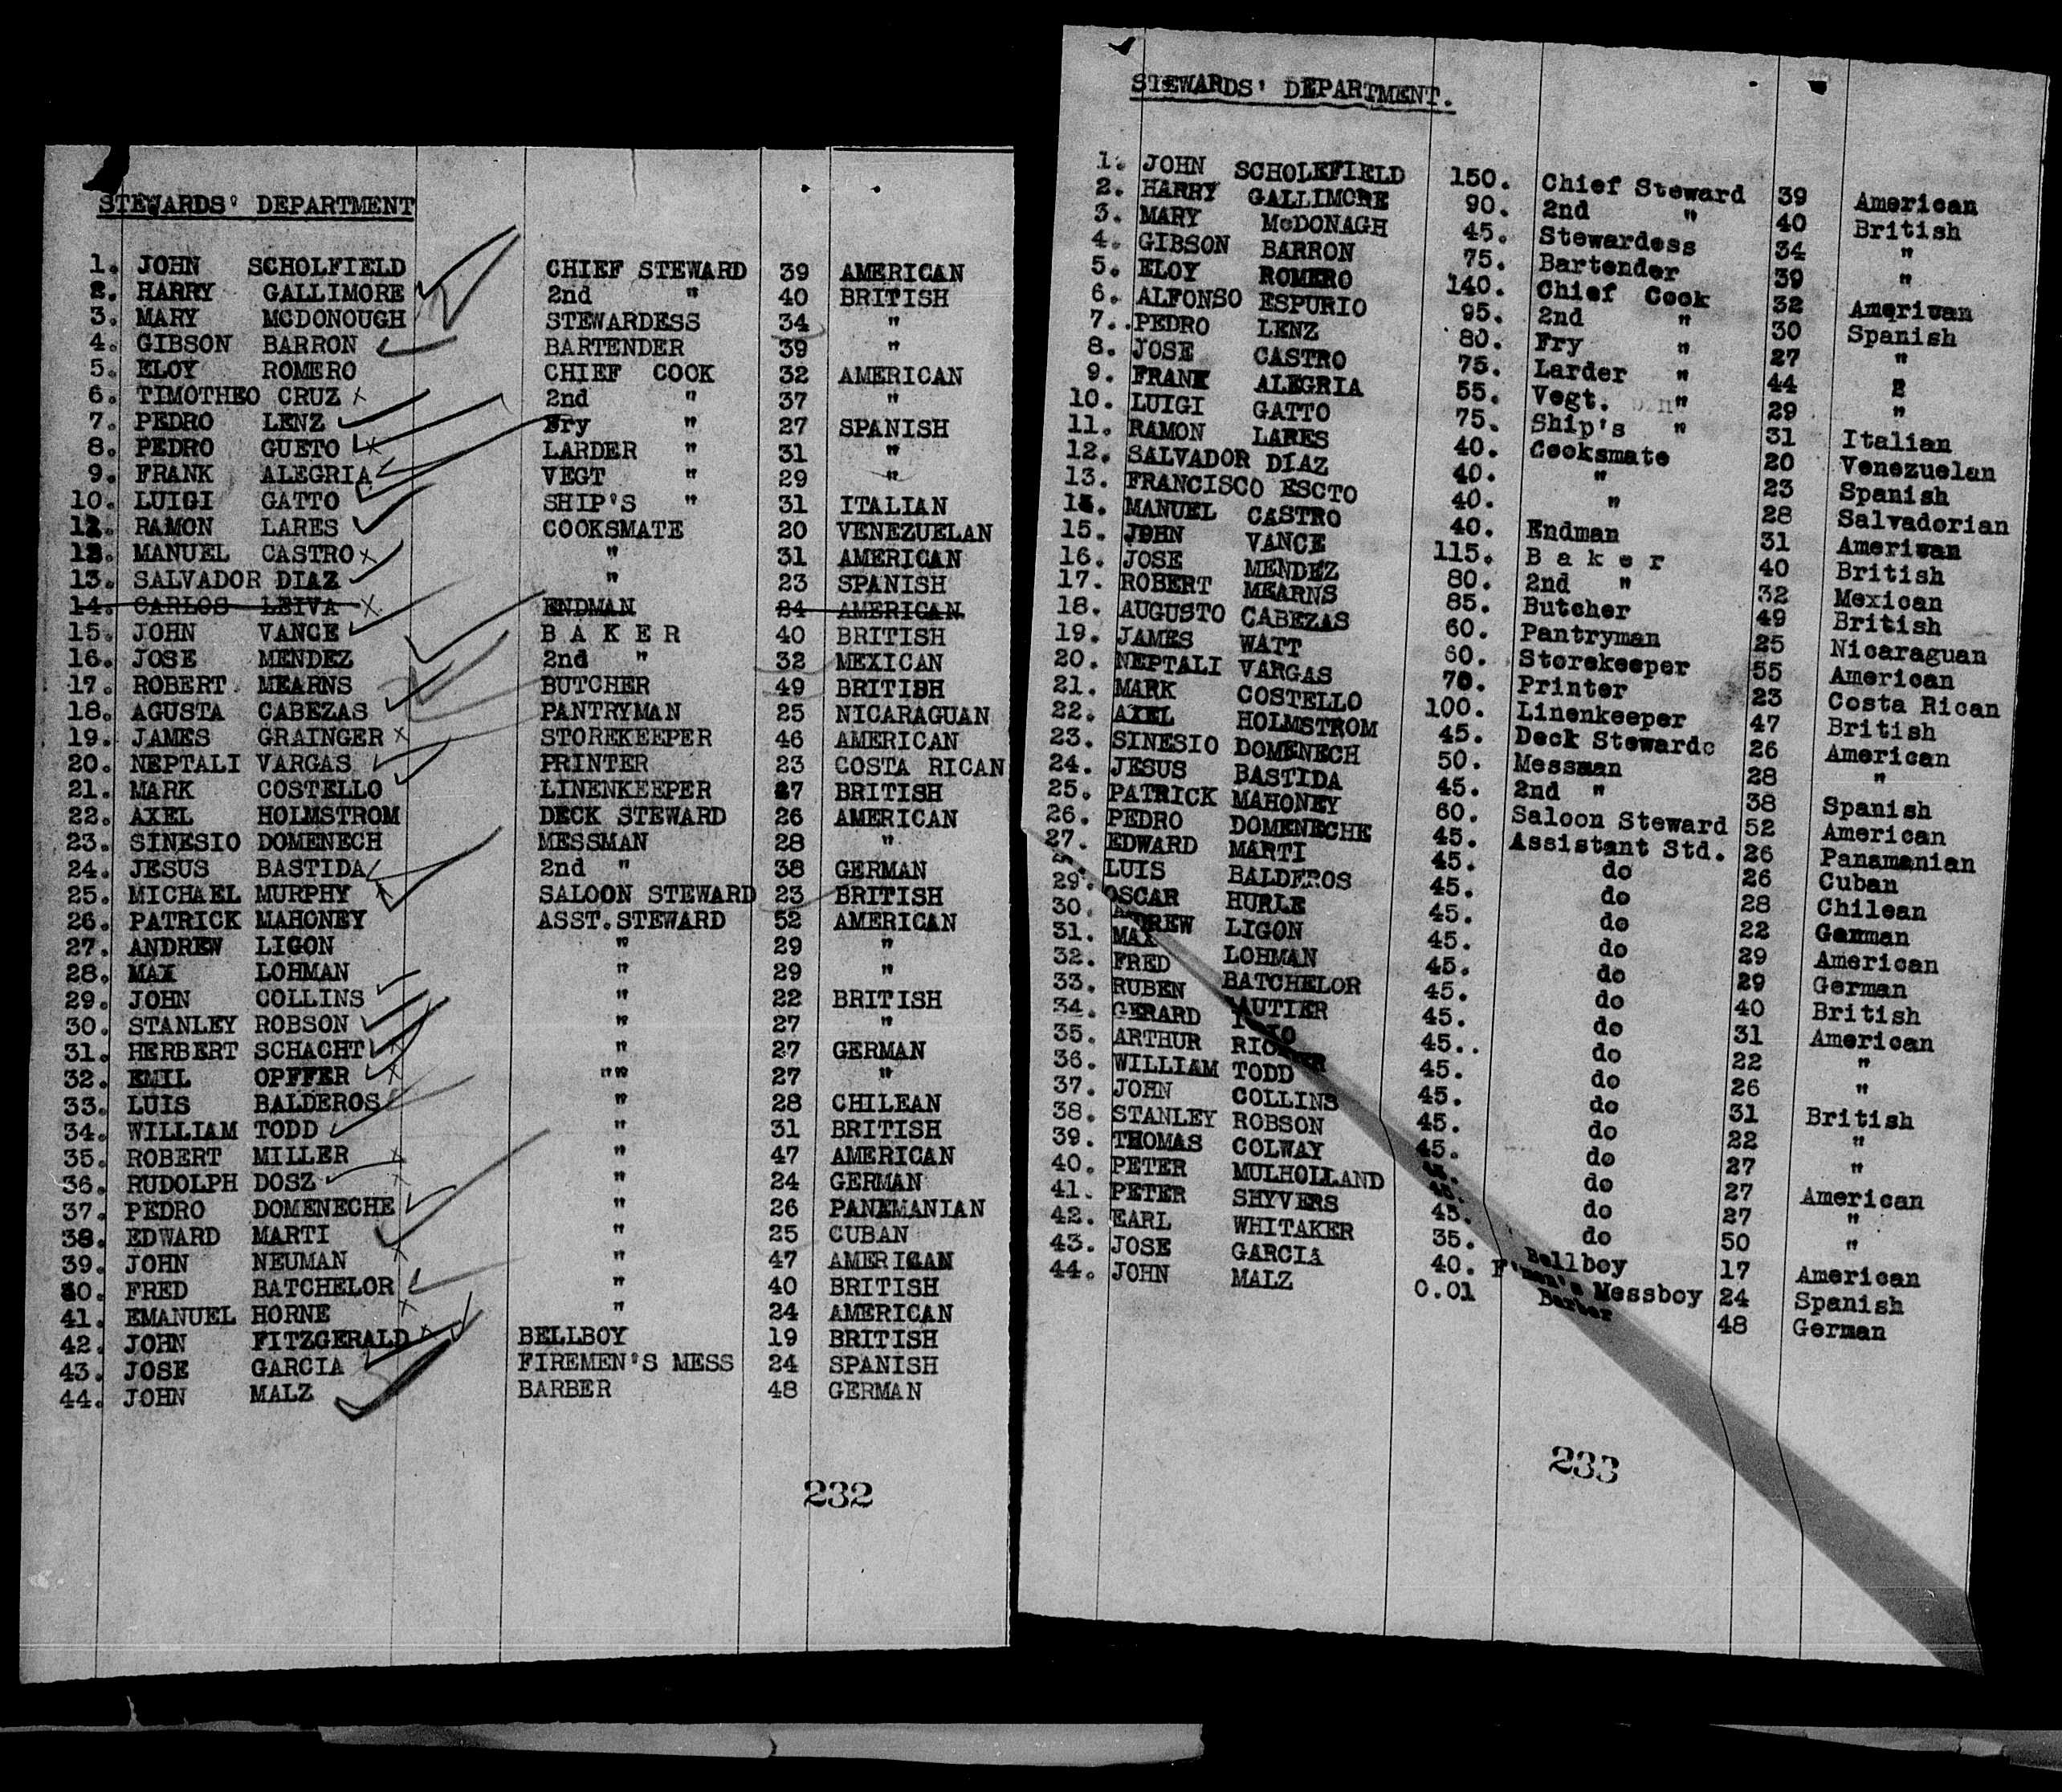 STEWARDS' DEPARTMENT
1. JOHN SCHOLFIELD CHIEF STEWARD 39 AMERICAN
2. HARRY GALLIMORE 2nd " 40 BRITISH
3. MARY MCDONOUGH STEWARDESS 34 "
4. GIBSON BARRON BARTENDER 39 "
5. ELOY ROMERO CHIEF COOK 32 AMERICAN
6. TIMOTHEO CRUZ 2nd " 37 "
7. PEDRO LENZ Fry " 27 SPANISH
8. PEDRO GUETO LARDER " 31 "
9. FRANK ALEGRIA VEGT " 29 "
10. LUIGI GATTO SHIP'S " 31 ITALIAN
11. RAMON LARES COOKSMATE 20 VENEZUELAN
12. MANUEL CASTRO " 31 AMERICAN
13. SALVADOR DIAZ " 23 SPANISH
14. CARLOS LEIVA ENDMAN 24 AMERICAN
15. JOHN VANCE B A K E R 40 BRITISH
16. JOSE MENDEZ 2nd " 32 MEXICAN
17. ROBERT MEARNS BUTCHER 49 BRITISH
18. AGUSTA CABEZAS PANTRYMAN 25 NICARAGUAN
19. JAMES GRAINGER STOREKEEPER 46 AMERICAN
20. NEPTALI VARGAS PRINTER 23 COSTA RICAN
21. MARK COSTELLO LINENKEEPER 47 BRITISH
22. AXEL HOLMSTROM DECK STEWARD 26 AMERICAN
23. SINESIO DOMENECH MESSMAN 28 "
24. JESUS BASTIDA 2nd " 38 GERMAN
25. MICHAEL MURPHY SALOON STEWARD 23 BRITISH
26. PATRICK MAHONEY ASST.STEWARD 52 AMERICAN
27. ANDREW LIGON " 29 "
28. MAX LOHMAN " 29 "
29. JOHN COLLINS " 22 BRITISH
30. STANLEY ROBSON " 27 "
31. HERBERT SCHACHT " 27 GERMAN
32. EMIL OPFFER "" 27 "
33. LUIS BALDEROS " 28 CHILEAN
34. WILLIAM TODD " 31 BRITISH
35. ROBERT MILLER " 47 AMERICAN
36. RUDOLPH DOSZ " 24 GERMAN
37. PEDRO DOMENECHE " 26 PANAMANIAN
38. EDWARD MARTI " 25 CUBAN
39. JOHN NEUMAN " 47 AMERICAN
40. FRED BATCHELOR " 40 BRITISH
41. EMANUEL HORNE " 24 AMERICAN
42. JOHN FITZGERALD BELLBOY 19 BRITISH
43. JOSE GARCIA FIREMEN'S MESS 24 SPANISH
44. JOHN MALZ BARBER 48 GERMAN
232
STEWARDS' DEPARTMENT.
1. JOHN SCHOLEFIELD 150. Chief Steward 39 American
2. HARRY GALLIMORE 90. 2nd " 40 British
3. MARY McDONAGH 45. Stewardess 34 "
4. GIBSON BARRON 75. Bartender 39 "
5. ELOY ROMERO 140. Chief Cook 32 American
6. ALFONSO ESPURIO 95. 2nd " 30 Spanish
7.. PEDRO LENZ 80. Fry " 27 "
8. JOSE CASTRO 75. Larder " 44 "
9. FRANK ALEGRIA 55. Vegt. " 29 "
10. LUIGI GATTO 75. Ship's " 31 Italian
11. RAMON LARES 40. Cooksmate 20 Venezuelan
12. SALVADOR DIAZ 40. " 23 Spanish
13. FRANCISCO ESCTO 40. " 28 Salvadorian
14. MANUEL CASTRO 40. Endman 31 American
15. JOHN VANCE 115. B a k e r 40 British
16. JOSE MENDEZ 80. 2nd " 32 Mexican
17. ROBERT MEARNS 85. Butcher 49 British
18. AUGUSTO CABEZAS 60. Pantryman 25 Nicaraguan
19. JAMES WATT 60. Storekeeper 55 American
20. NEPTALI VARGAS 70. Printer 23 Costa Rican
21. MARK COSTELLO 100. Linenkeeper 47 British
22. AXEL HOLMSTROM 45. Deck Stewardc 26 American
23. SINESIO DOMENECH 50. Messman 28 "
24. JESUS BASTIDA 45. 2nd " 38 Spanish
25. PATRICK MAHONEY 60. Saloon Steward 52 American
26. PEDRO DOMENECHE 45. Assistant Std. 26 Panamanian
27. EDWARD MARTI 45. do 26 Cuban
LUIS BALDEROS 45. do 28 Chilean
29. OSCAR HURLE 45. do 22 German
30. ANDREW LIGON 45. do 29 American
31. MAX LOHMAN 45. do 29 German
32. FRED BATCHELOR 45. do 40 British
33. RUBEN GAUTIER 45. do 31 American
34. GERARD 45.. do 22 "
35. ARTHUR 45. do 26 "
36. WILLIAM TODD 45. do 31 British
37. JOHN COLLINS 45. do 22 "
38. STANLEY ROBSON 45. do 27 "
39. THOMAS COLWAY 45. do 27 American
40. PETER MULHOLLAND 45. do 27 "
41. PETER SHYVERS 45. do 50 "
42. EARL WHITAKER 35. Bellboy 17 American
43. JOSE GARCIA 40. F'men's Messboy 24 Spanish
44. JOHN MALZ 0.01 Barber 48 German
233